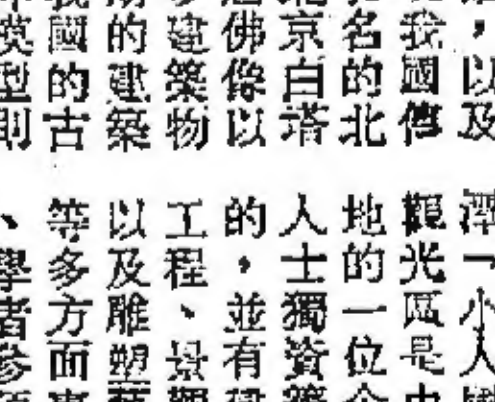 ，以及
我國傳
名的北
京白塔
佛像以
建築物
的建築
國的古
模型則
潭「小人
觀光區是由
地的一位企
人士獨資籌
的，並有
工程、景觀
以及雕塑
等多方面專
、學者參